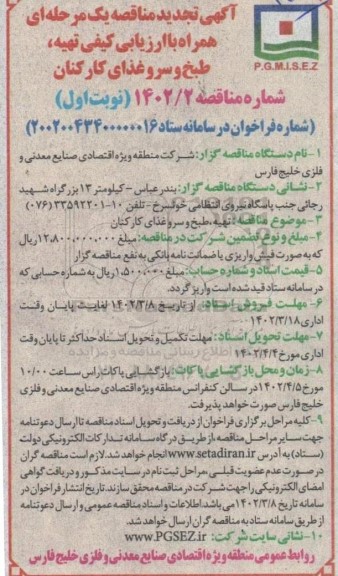 آگهی تجدید مناقصه یک مرحله‌ای
همراه با ارزیابی کیفی تهیه،
طبخ و سرو غذای کارکنان
P.G.M.I.S.E.Z
شماره مناقصه ۱۴۰۲/۲ (نوبت اول)
(شماره فراخوان در سامانه ستاد ۲۰۰۲۰۰۴۳۴۰۰۰۰۰۱۶)
۱- نام دستگاه مناقصه گزار: شرکت منطقه ویژه اقتصادی صنایع معدنی و
فلزی خلیج فارس
۲- نشانی دستگاه مناقصه گزار: بندرعباس - کیلومتر ۱۳ بزرگراه شهید
رجائی جنب پاسگاه نیروی انتظامی خونسرخ - تلفن ۱۰-۳۳۵۹۲۲۰۱ (۰۷۶)
۳- موضوع مناقصه: تهیه، طبخ و سرو غذای کارکنان
۴- مبلغ و نوع تضمین شرکت در مناقصه: مبلغ ۱۲,۸۰۰,۰۰۰,۰۰۰ ریال
که به صورت فیش واریزی یا ضمانت نامه بانکی به نفع مناقصه گزار
۵- قیمت اسناد و شماره حساب: مبلغ ۱,۵۰۰,۰۰۰ ریال به شماره حسابی که
در سامانه ستاد قید شده است واریز گردد.
۶- مهلت فروش اسناد: از تاریخ ۱۴۰۲/۳/۸ لغایت پایان وقت
اداری ۱۴۰۲/۳/۱۸
۷- مهلت تحویل اسناد: مهلت تکمیل و تحویل اسناد حداکثر تا پایان وقت
اداری مورخ ۱۴۰۲/۴/۴
۸- زمان و محل بازگشایی پاکات: بازگشایی پاکات راس ساعت ۱۰/۰۰
مورخ ۱۴۰۲/۴/۵ در سالن کنفرانس منطقه ویژه اقتصادی صنایع معدنی و فلزی
خلیج فارس صورت خواهد پذیرفت.
۹- کلیه مراحل برگزاری فراخوان از دریافت و تحویل اسناد مناقصه تا ارسال دعوتنامه
جهت سایر مراحل مناقصه از طریق درگاه سامانه تدارکات الکترونیکی دولت
(ستاد) به آدرس www.setadiran.ir انجام خواهد شد. لازم است مناقصه گران
در صورت عدم عضویت قبلی، مراحل ثبت نام در سایت مذکور و دریافت گواهی
امضای الکترونیکی را جهت شرکت در مناقصه محقق سازند. تاریخ انتشار فراخوان در
سامانه تاریخ ۱۴۰۲/۳/۸ می باشد اطلاعات و اسناد مناقصه عمومی و ارسال دعوتنامه
از طریق سامانه ستاد به مناقصه گران ارسال خواهد شد.
۱۰- نشانی سایت شرکت: www.PGSEZ.ir
روابط عمومی منطقه ویژه اقتصادی صنایع معدنی و فلزی خلیج فارس